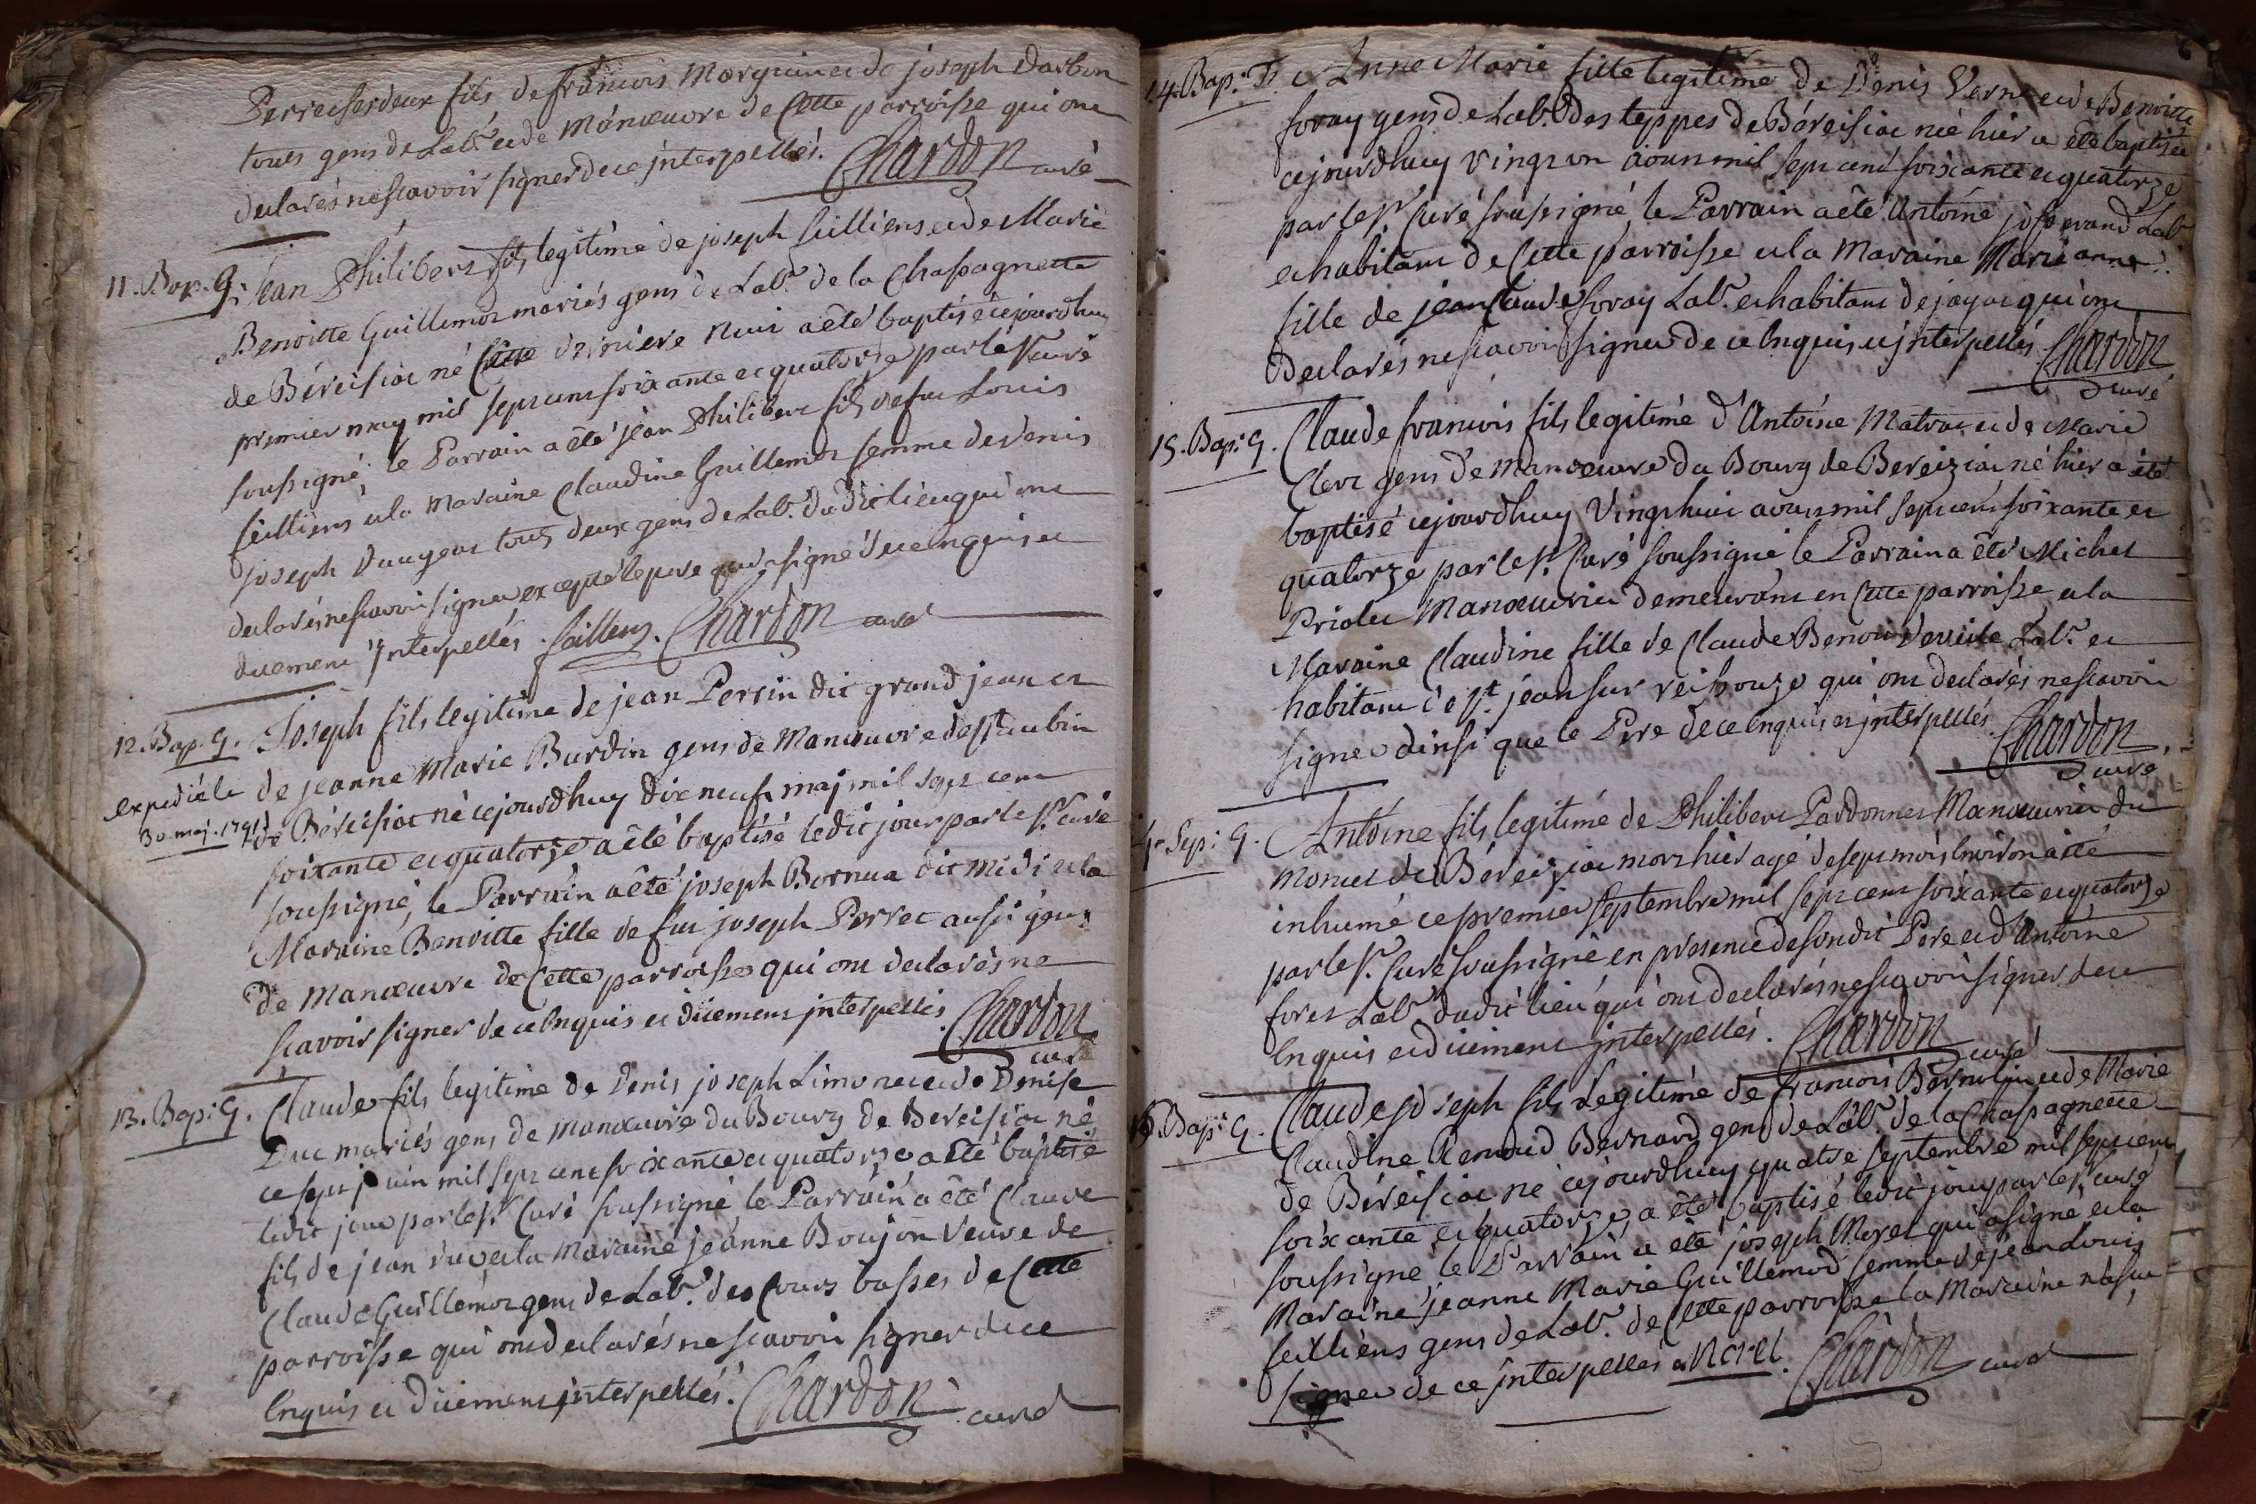 Perret ses deux fils de francois Morguin et de joseph Darbon
tous gens de Labr. et de Manœuvre de Cette parroisse qui ont
declarés ne scavoir signer de ce interpellés. Chardon curé
11. Bap. G. Jean Philibert fils legitime de joseph Cuilliens et de Marie
Benoitte Guillemot mariés gens de Labr. de la Chapagnette
de Béreisiat né Cette derniere nuit a été baptisé cejourdhuy
premier may mil sept cent soixante et quatorze par le Sr. curé
soussigné, le Parrain a été jean Philibert fils de feu Louis
Cuilliens et la Maraine Claudine Guillemot femme de denis
joseph tous deux gens de Labr. dudit lieu qui ont
declarés ne scavoir signer excepté le pere qui a signé de ce enquis et
duement Interpellés. Chardon curé
12. Bap. G. Joseph fils legitime de jean Perrin dit grand jean et
de jeanne Marie Burdin gens de Manœuvre de St. aubin
expedié le
30 maj. 1791
de Béreisiat né cejourdhuy dix neuf maj mil sept cent
soixante et quatorze a été baptisé ledit jour par le Sr. curé
soussigné, le Parrain a été joseph Bornua dit Midi et la
Maraine Benoitte fille de feu joseph Perret aussi gens
de Manœuvre de Cette parroisse qui ont declarés ne
scavoir signer de ce Enquis et düement interpellés. Chardon
curé
13. Bap: G. Claude fils legitime de Denis joseph Limonet et de Denise
Duc mariés gens de manœuvre du Bourg de Bereisiat né
ce sept juin mil sept cent soixante et quatorze a été baptisé
ledit jour par le Sr. Curé soussigné le Parrain a été Claude
fils de jean duc et la Maraine jeanne Boujon Veuve de
Claude Guillemot gens de Labr. des Cours basses de Cette
parroisse qui ont declarés ne scavoir signer de ce
Enquis et düement interpellés. Chardon curé
14. Bap. F. Anne Marie fille legitime de Denis Verne et de Benoitte
foray gens de Labr. des teppes de Béreisiat née hier a été baptisée
cejourdhuy vingt un aoust mil sept cent soixante et quatorze
par le Sr. Curé soussigné, le Parrain a été Antoine josserand Labr.
et habitant de Cette parroisse et la Maraine Marie anne
fille de jean Claude foray Labr. et habitant de jayat qui ont
Declarés ne scavoir signer de ce Enquis et interpellés Chardon
curé
15. Bap: G. Claude francois fils legitime d'Antoine Matrat et de Marie
Clerc gens de Manœuvre du Bourg de Bereiziat né hier a été
baptisé cejourdhuy Vingt huit aoust mil sept cent soixante et
quatorze par le Sr. Curé soussigné, le Parrain a été Michel
Priolet Manœuvrier demeurant en Cette parroisse et la
Maraine Claudine fille de Claude Benoit Labr. et
habitant à St. jean sur reissouze qui ont declarés ne scavoir
signer ainsi que le Pere de ce enquis et interpellés Chardon
curé
4e Sep: G. Antoine fils legitime de Philibert Pardonnet Manœuvrier du
Moncet de Béreiziat mort hier agé de sept mois Environ a été
inhumé ce premier septembre mil sept cent soixante et quatorze
par le Sr. Curé soussigné en presence de son dit Pere et d'Antoine
foret Labr. dudit lieu qui ont declarés ne scavoir signer de ce
Enquis et düement interpellés. Chardon curé
16. Bap: G. Claude joseph fils Légitime de francois Bernolin et de Marie
Claudine Renoud Bernard gens de Labr. de la Chapagnette
de Béreisiat né cejourdhuy quatre septembre mil sept cent
soixante et quatorze, a été baptisé ledit jour par le Sr. curé
soussigné le Parrain a été joseph Morel qui a signé et la
Maraine jeanne Marie Guillemod femme de jean Louis
Cuilliens gens de Labr. de Cette parroisse la Maraine n'a su
signer de ce interpellés Morel. Chardon curé